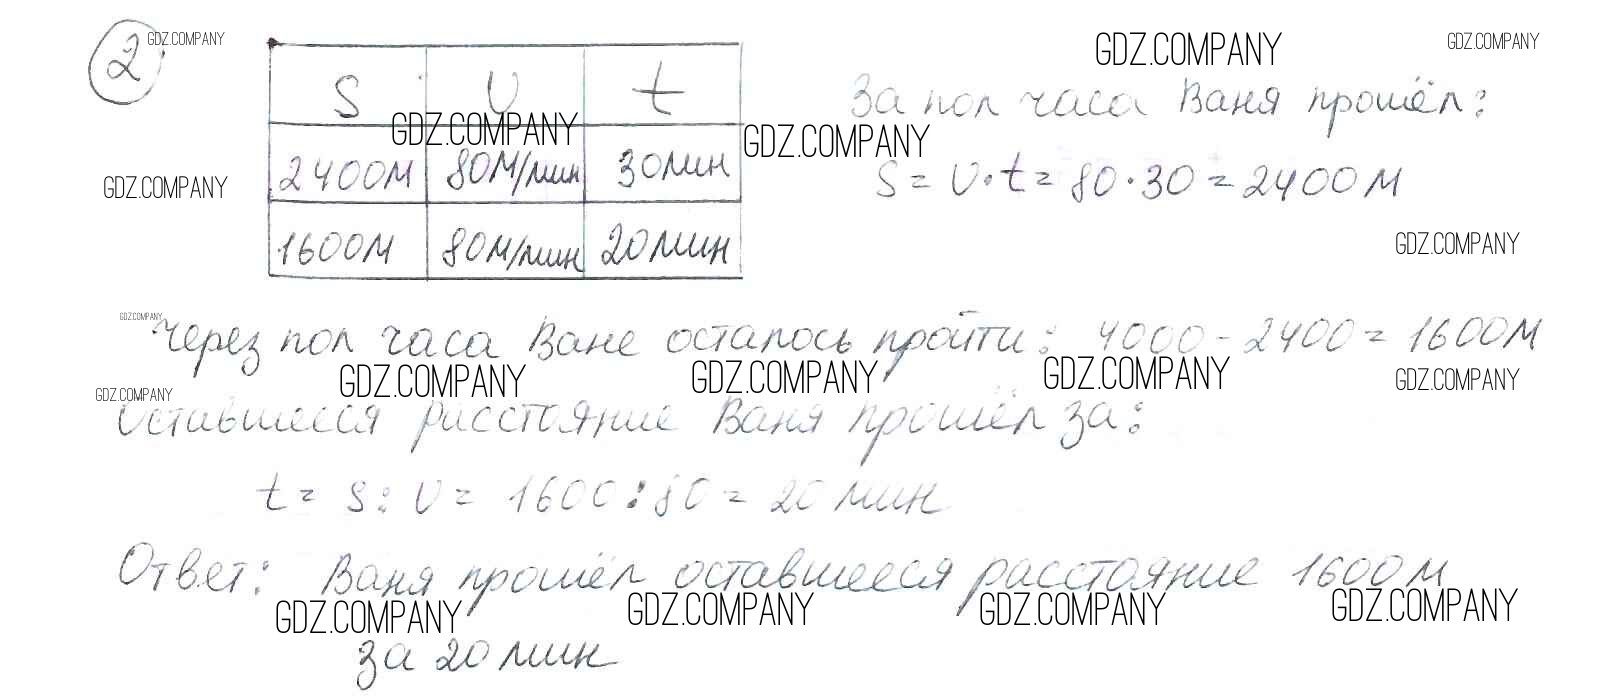 2 GDZ.COMPANY
GDZ.COMPANY
GDZ.COMPANY
S υ t
GDZ.COMPANY
GDZ.COMPANY
За пол часа Ваня прошёл:
2400м 80м/мин 30мин
S = υ·t = 80·30 = 2400м
GDZ.COMPANY
1600м 80м/мин 20мин
GDZ.COMPANY
GDZ.COMPANY
Через пол часа Ване осталось пройти: 4000 - 2400 = 1600м
GDZ.COMPANY
GDZ.COMPANY
GDZ.COMPANY
GDZ.COMPANY
GDZ.COMPANY
Оставшееся расстояние Ваня прошёл за:
t = S : υ = 1600 : 80 = 20 мин
Ответ: Ваня прошёл оставшееся расстояние 1600м
GDZ.COMPANY
GDZ.COMPANY
GDZ.COMPANY
GDZ.COMPANY
за 20 мин